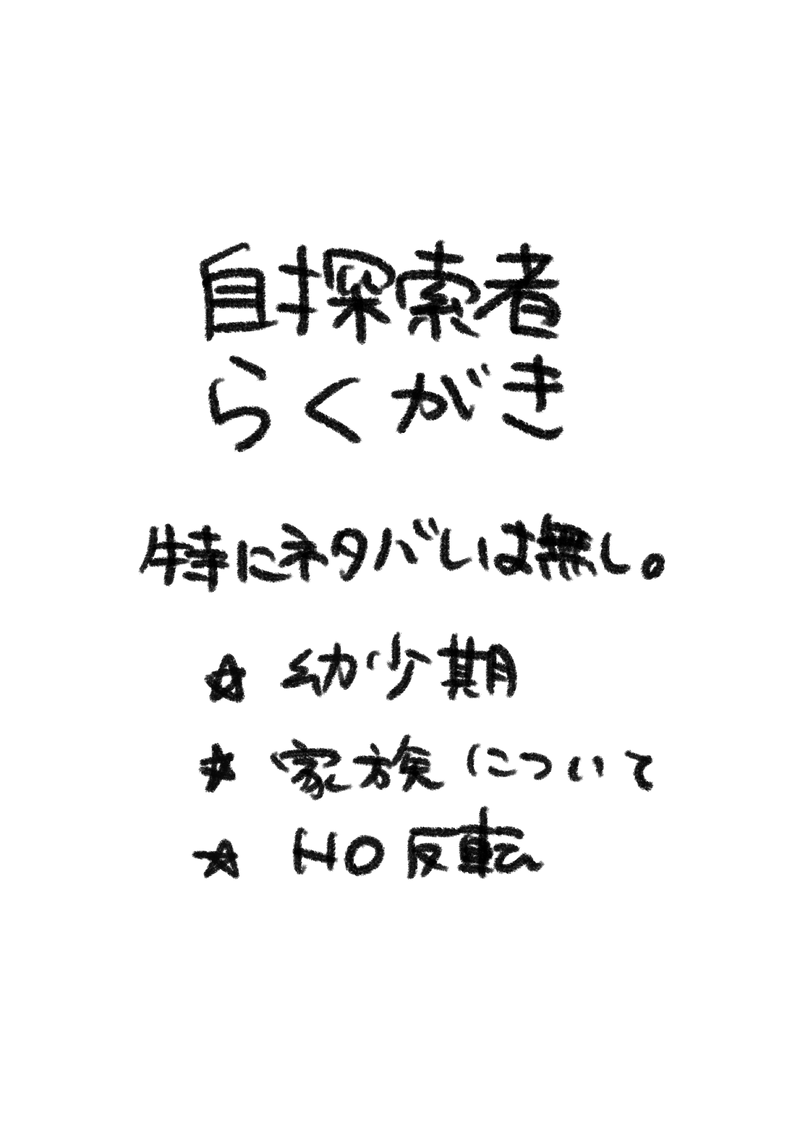 自探索者
らくがき
特にネタバレは無し。
☆ 幼少期
☆ 家族について
☆ HO反転